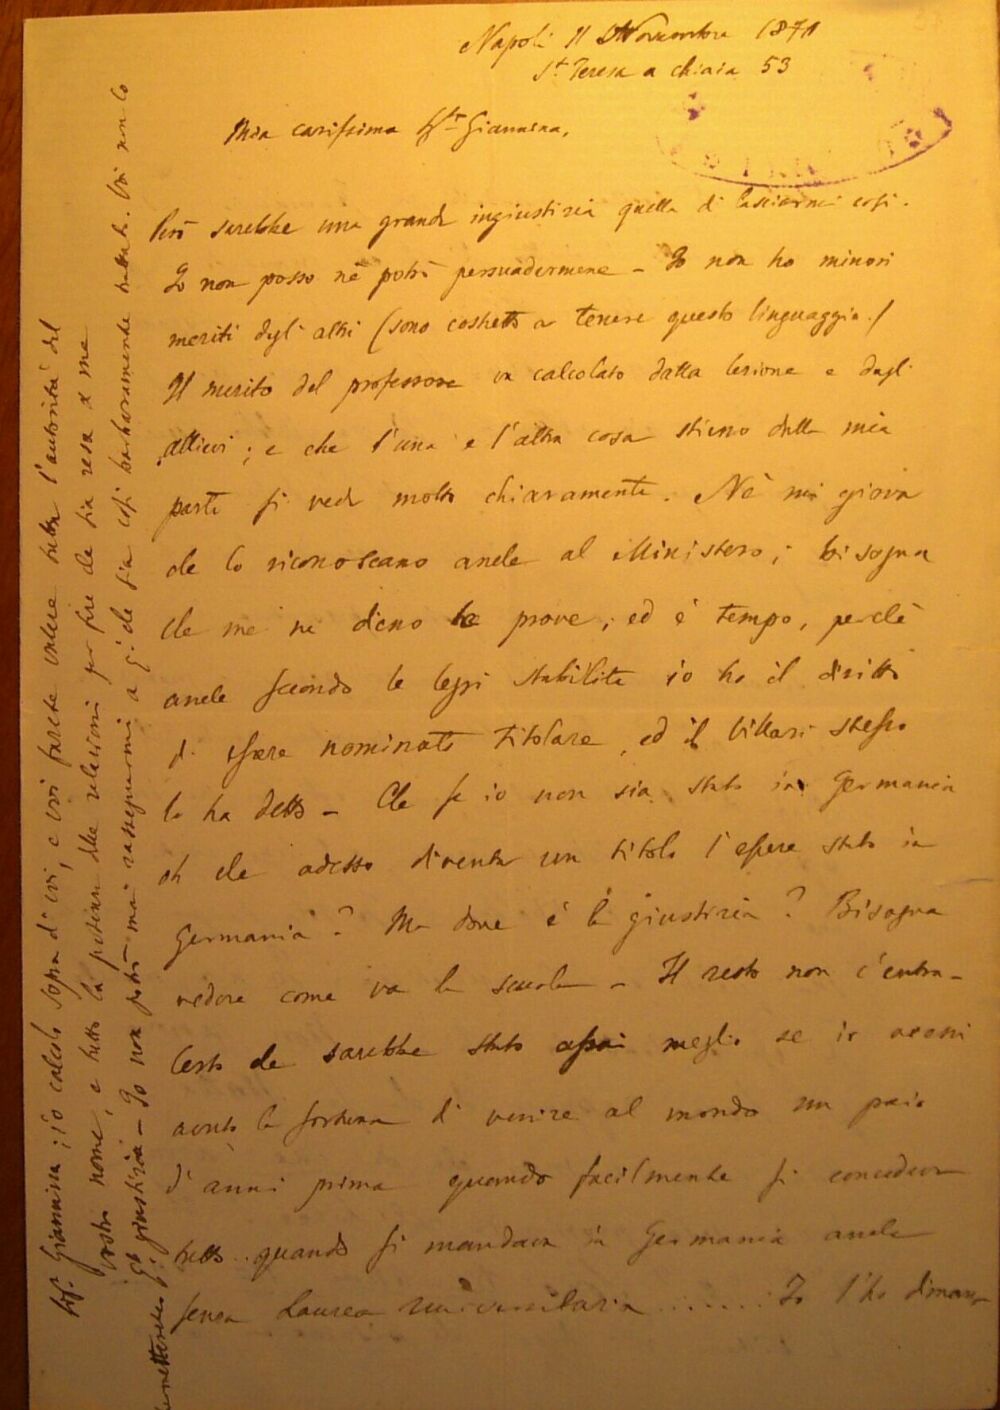 Napoli 11 Novembre 1871
St Teresa a chiaia 53
Mia carissima Sra Giannina,
Però sarebbe una grande ingiustizia quella di lasciarmi così.
Io non posso nè potrò persuadermene – Io non ho minori
meriti degli altri (sono costretto a tenere questo linguaggio.)
Il merito del professore va calcolato dalla lezione e dagli
allievi; e che l'una e l'altra cosa stieno dalla mia
parte si vede molto chiaramente. Nè mi giova
che lo riconoscano anche al Ministero; bisogna
che me ne dieno le prove; ed è tempo, perchè
anche secondo le leggi stabilite io ho il diritto
di essere nominato titolare, ed il Villari stesso
lo ha detto – Che se io non sia stato in Germania
oh che adesso diventa un titolo l'essere stato in
Germania? Ma dove è la giustizia? Bisogna
vedere come va la scuola – Il resto non c'entra –
Certo che sarebbe stato assai meglio se io avessi
avuto la fortuna di venire al mondo un paio
d'anni prima quando facilmente si concedeva
tutto.. quando si mandava in Germania anche
senza Laurea universitaria ....... Io l'ho diman-
Sra. Giannina; io calcolo sopra di voi, e voi farete valere tutta l'autorità del
vostro nome, e tutta la potenza delle relazioni per fare che sia resa a me
giustizia – Io non potrò mai rassegnarmi a che sia così barbaramente trattato. Voi non lo
permetterete